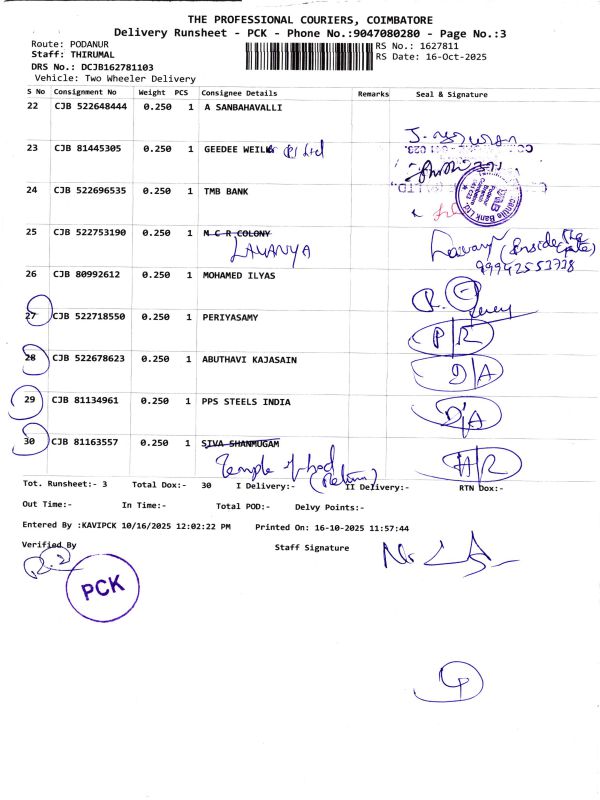 THE PROFESSIONAL COURIERS, COIMBATORE
Delivery Runsheet - PCK - Phone No.:9047080280 - Page No.:3
Route: PODANUR
RS No.: 1627811
Staff: THIRUMAL
RS Date: 16-Oct-2025
DRS No.: DCJB162781103
Vehicle: Two Wheeler Delivery
S No Consignment No Weight PCS Consignee Details Remarks Seal & Signature
22 CJB 522648444 0.250 1 A SANBAHAVALLI
23 CJB 81445305 0.250 1 GEEDEE WEILER (P) Ltd
24 CJB 522696535 0.250 1 TMB BANK
25 CJB 522753190 0.250 1 M C R COLONY
LAVANYA
Lavany (Inside The Gate)
99942553738
26 CJB 80992612 0.250 1 MOHAMED ILYAS
27 CJB 522718550 0.250 1 PERIYASAMY
P/R
28 CJB 522678623 0.250 1 ABUTHAVI KAJASAIN
D/A
29 CJB 81134961 0.250 1 PPS STEELS INDIA
D/A
30 CJB 81163557 0.250 1 SIVA SHANMUGAM
Temple of
A/R
Tot. Runsheet:- 3 Total Dox:- 30 I Delivery:- II Delivery:- RTN Dox:-
Out Time:- In Time:- Total POD:- Delvy Points:-
Entered By :KAVIPCK 10/16/2025 12:02:22 PM Printed On: 16-10-2025 11:57:44
Verified By
Staff Signature
PCK